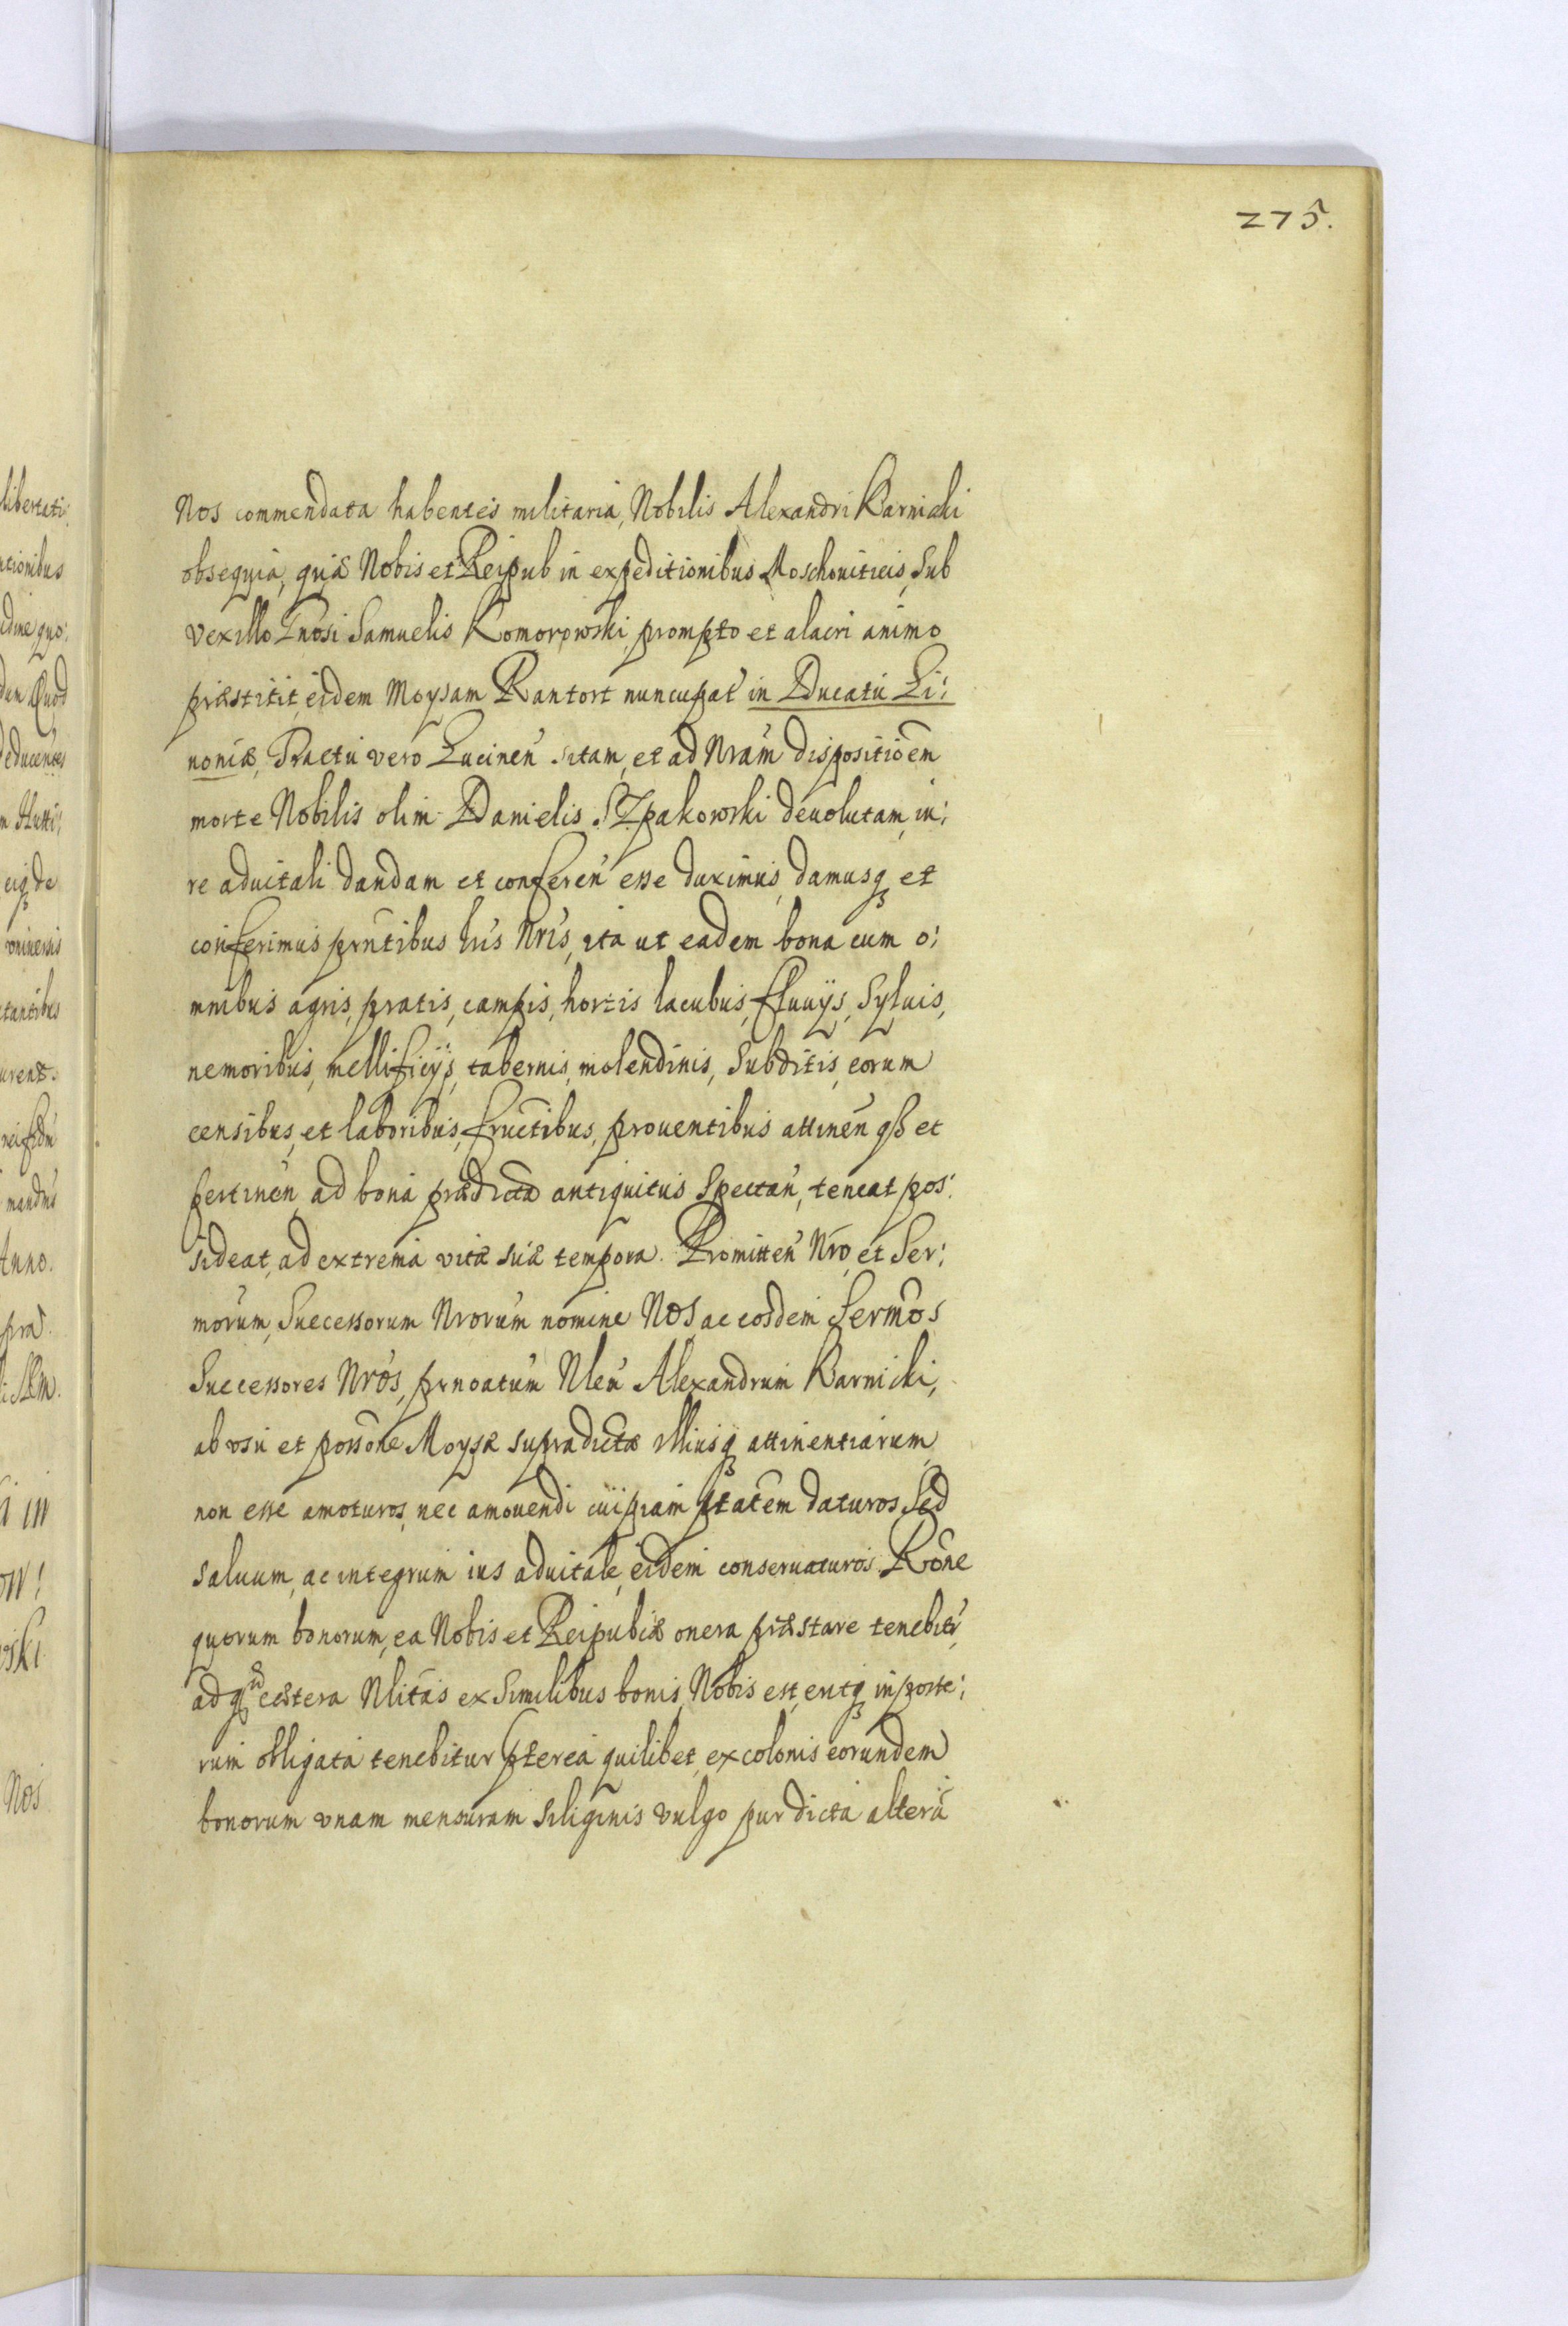 275.
Nos commendata habentes militaria, Nobilis Alexandri Barnicki
obsequia, quæ Nobis et Reipub in expeditionibus Moschouiticis, sub
vexillo Gnosi Samuelis Komorowski prompto et alacri animo
præstitit, eidem Moysam Rantort nuncupat in Ducatu Li:
noniæ, Tractu vero Lucinen sitam, et ad Nram dispositioem
morte Nobilis olim Danielis Szpakowski deuolutam, iu:
re aduitali dandam et conferen esse duximus, damusq et
conferimus prntibus his Nris, ita ut eadem bona cum o:
mnibus agris, pratis, campis, hortis lacubus, fluuijs, syluis,
nemoribus, mellificijs, tabernis, molendinis, subditis, eorum
censibus, et laboribus, fructibus, prouentibus attinen qb et
pertinen ad bona prædicta antiquitus spectan, teneat pos:
sideat, ad extrema vitæ suæ tempora. Promitten Nro, et Ser:
morum, Successorum Nrorum nomine Nos, ac eosdem Sermos
Successores Nros, prnoatum Nlen Alexandrum Barnicki,
ab vsu et possone Moysæ supradictæ illiusq attinentiarum
non esse amoturos, nec amouendi cuipiam ptatem daturos Sed
saluum, ac integrum ius aduitale, eidem conseruaturos. Rone
quorum bonorum, ea Nobis et Reipublæ onera præstare tenebitr,
ad q cætera Nlitas ex similibus bonis, Nobis est, eritq in poste:
rum obligata tenebitur pterea quilibet, ex colonis eorundem
bonorum vnam mensuram siliginis vulgo pur dicta alterã